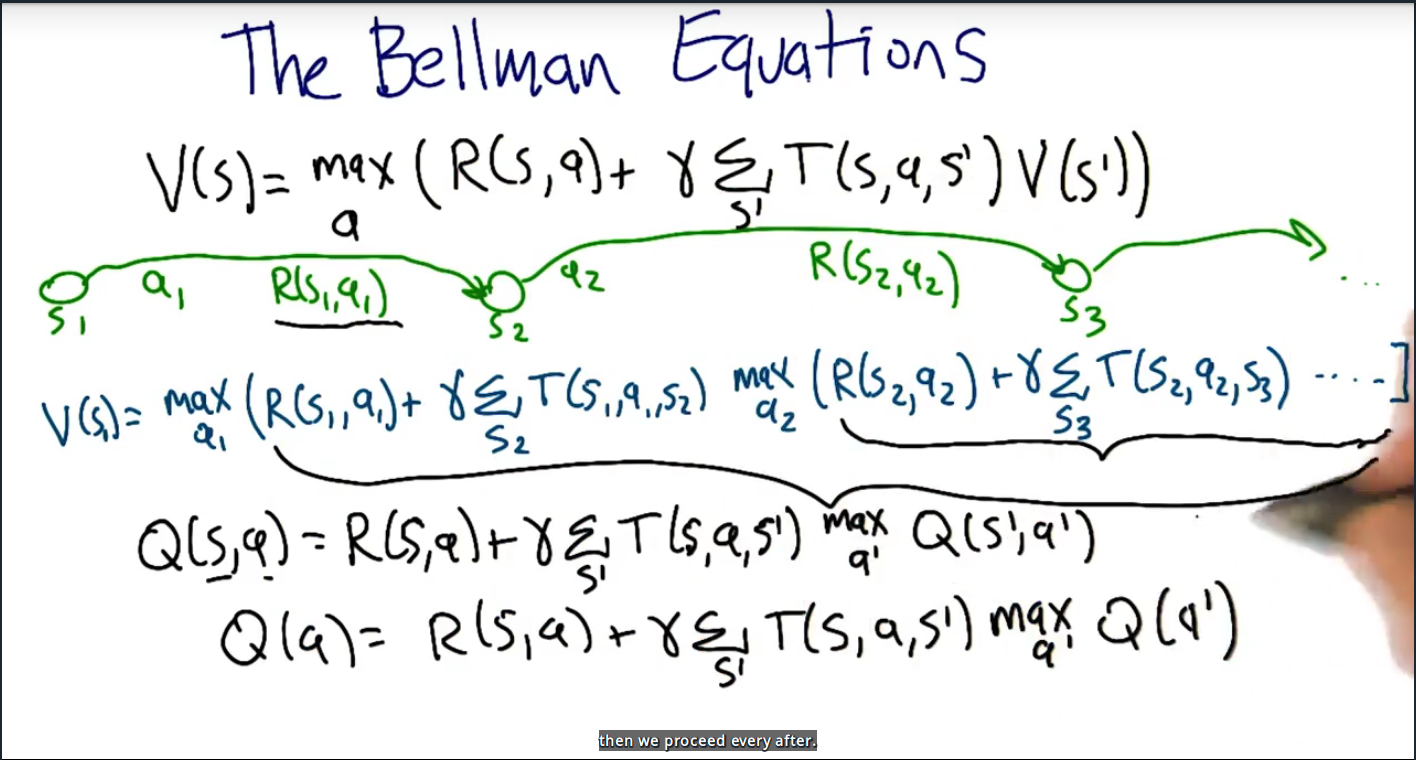 The Bellman Equations
V(s)= max a (R(s,a)+ γ Σ s' T(s,a,s')V(s'))
a1 R(s1,a1) a2 R(s2,a2) ...
s1 s2 s3
V(s1)= max a1 (R(s1,a1)+ γ Σ s2 T(s1,a1,s2) max a2 (R(s2,a2)+γ Σ s3 T(s2,a2,s3) ....]
Q(s,a) = R(s,a)+γ Σ s' T(s,a,s') max a' Q(s',a')
Q(a)= R(s,a)+γ Σ s' T(s,a,s') max a' Q(a')
then we proceed every after.